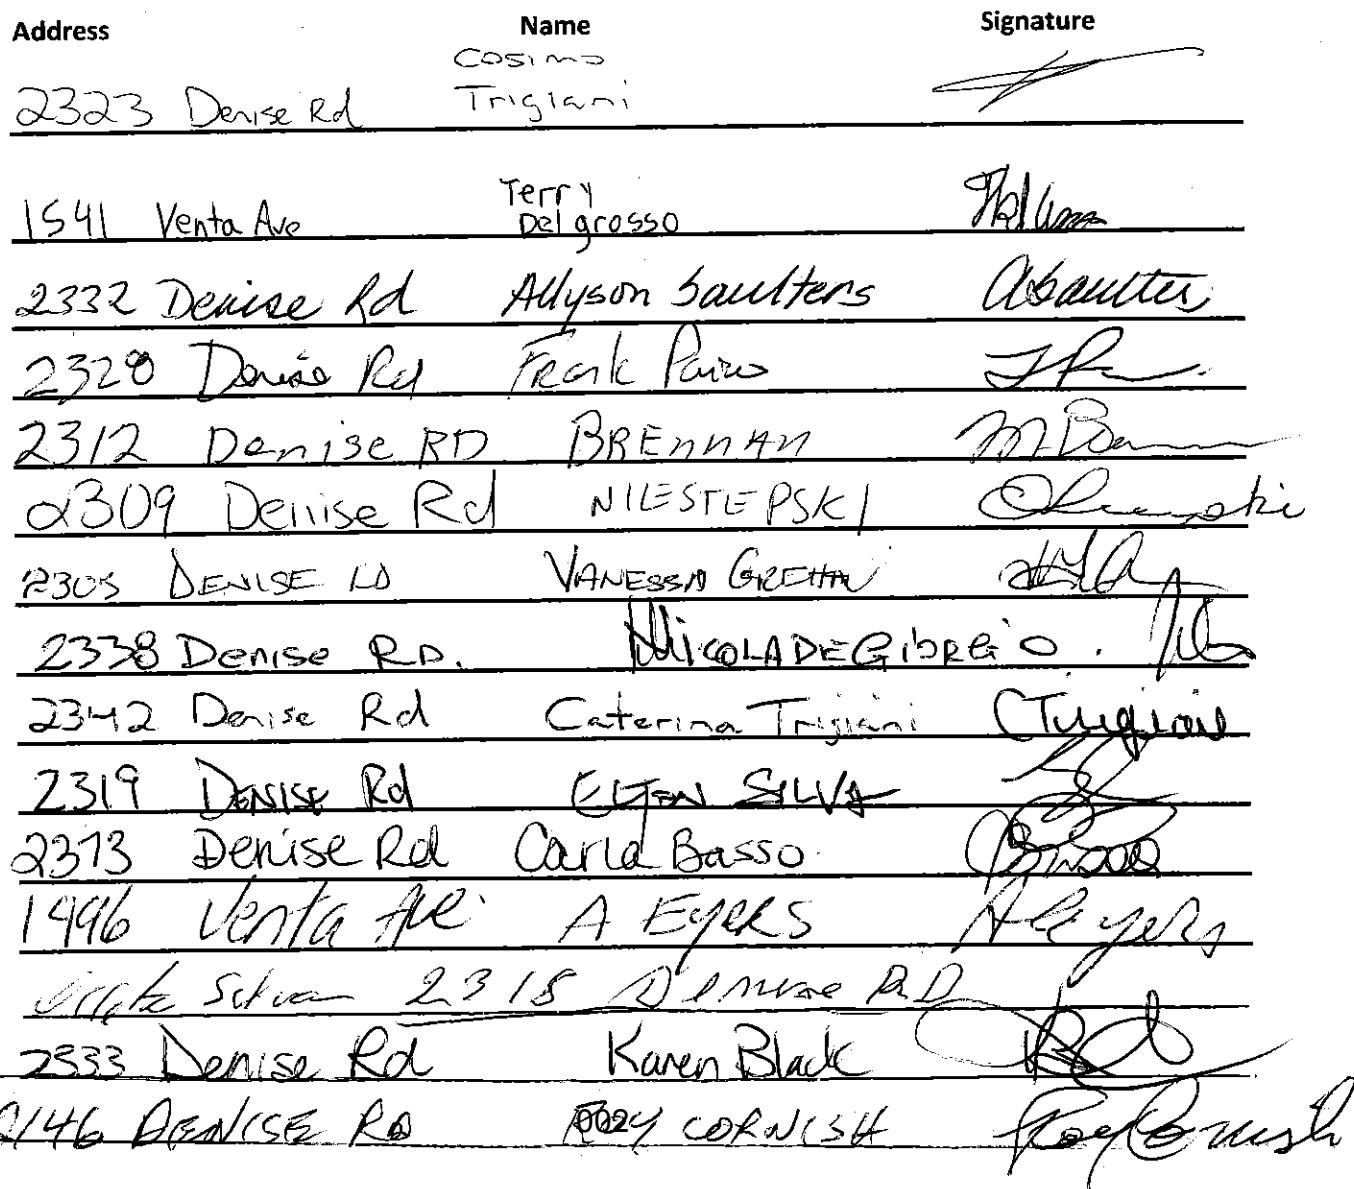 Address Name Signature
Cosimo
2323 Denise Rd Trigiani
Terry
1541 Venta Ave Delgrosso
2332 Denise Rd Allyson Saulters ASaulter
2328 Denise Rd Frank
2312 Denise RD BRENNAN M. Brennan
2309 Denise Rd NIESTEPSKI
2305 DENISE RD VANESSA GREHAN
2338 Denise RD. NICOLA DEGIORGIO.
2342 Denise Rd Caterina Trigiani CTrigiani
2319 DENISE Rd ELTON SILVA
2313 Denise Rd Carla Basso CBasso
1496 Venta Ave A EYERS A Eyers
2318 Denise RD
2333 Denise Rd Karen Black
2146 DENISE RD ROY CORNISH Roy Cornish